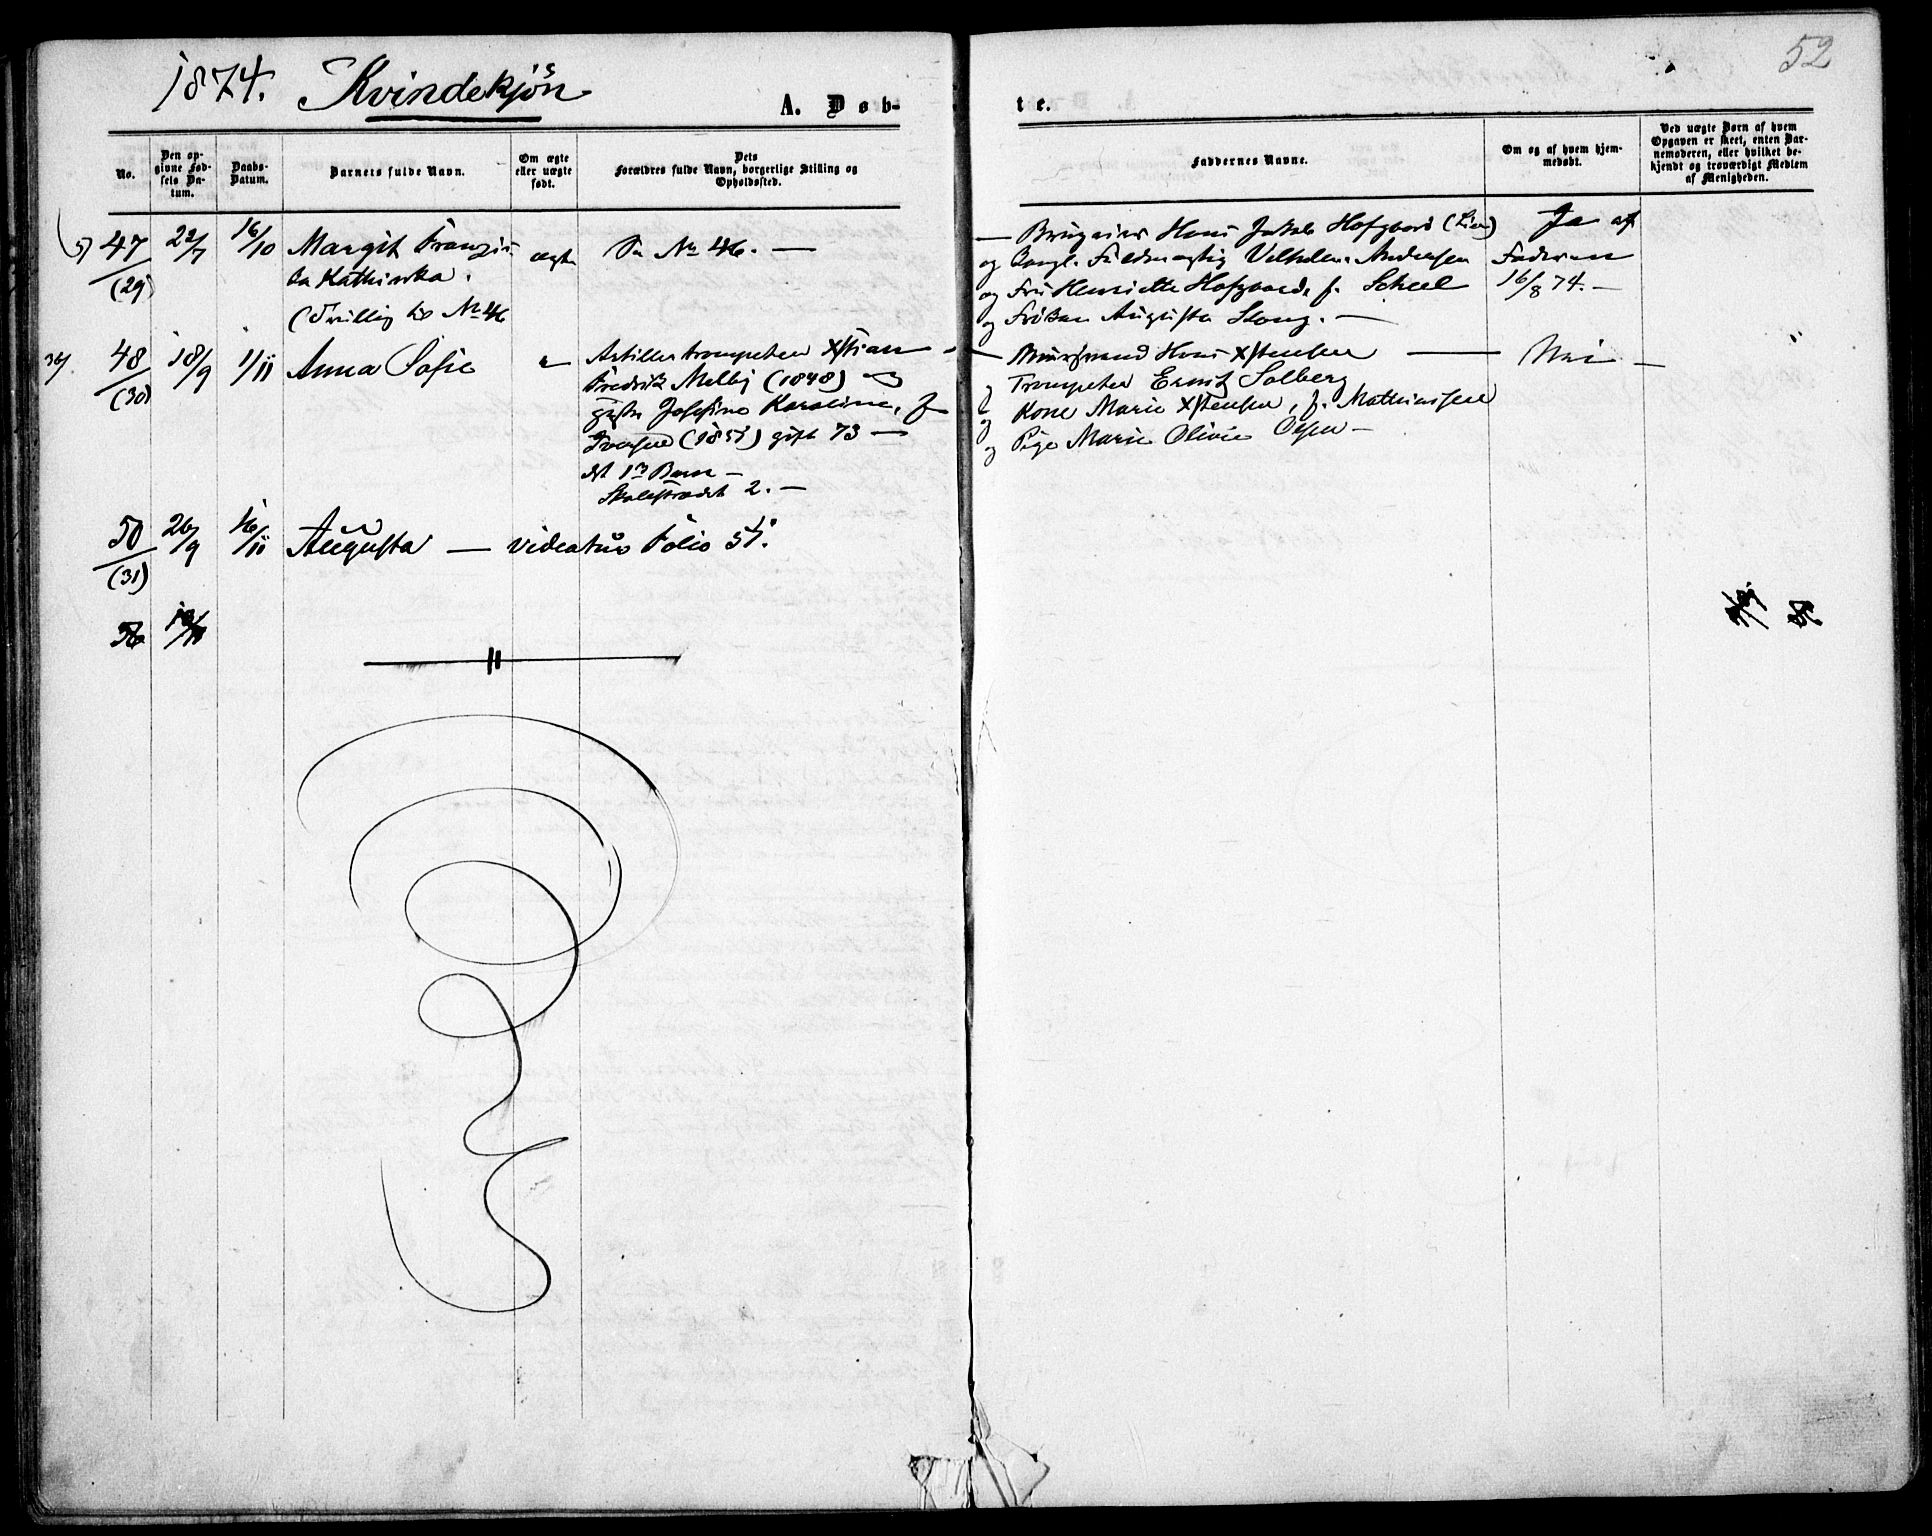 1874. Kvindekjön
52
A. Døb-
te.
No.
Den op-
givne Fød-
sels Da-
tum.
Daabs-
Datum.
Barnets fulde Navn.
Om ægte
eller uægte
født.
Dets
Forældres fulde Navn, borgerlige Stilling og
Opholdssted.
Faddernes Navne.
Om og af hvem hjem-
medøbt.
Ved uægte Børn af hvem
Opgaven er skeet, enten Bar-
nemoderen, eller hvilket be-
kjendt og troværdigt Medlem
af Menigheden.
47
(29)
22/7
16/10
Margit Franzis-
ka Kathinka.
(Tvilling til No 46
ægte
No 46. —
— Hans Jakob Hofgaard (Lier)
og Fuldmægtig Vilhelm Andersen
og Fru Henriette Hofgaard f. Scheel
og Frøken Augusta
Ja af
Faderen
16/8 74. —
48
(30)
18/9
1/11
Anna Sofie
Artilleritrompeter Xstian
Fredrik Melby (1848)
Josefine Karoline, f
Iversen (1851) gift 73 —
det 1ste Barn —
Skolestrædet 2. —
— Hans Xstensen —
Trompeter Ernst Solberg
og Kone Marie Xstensen, f. Mathiassen
og Pige Marie Olivie Olsen —
Nei —
50
(31)
26/9
16/11
Augusta — videatur Folio 51.